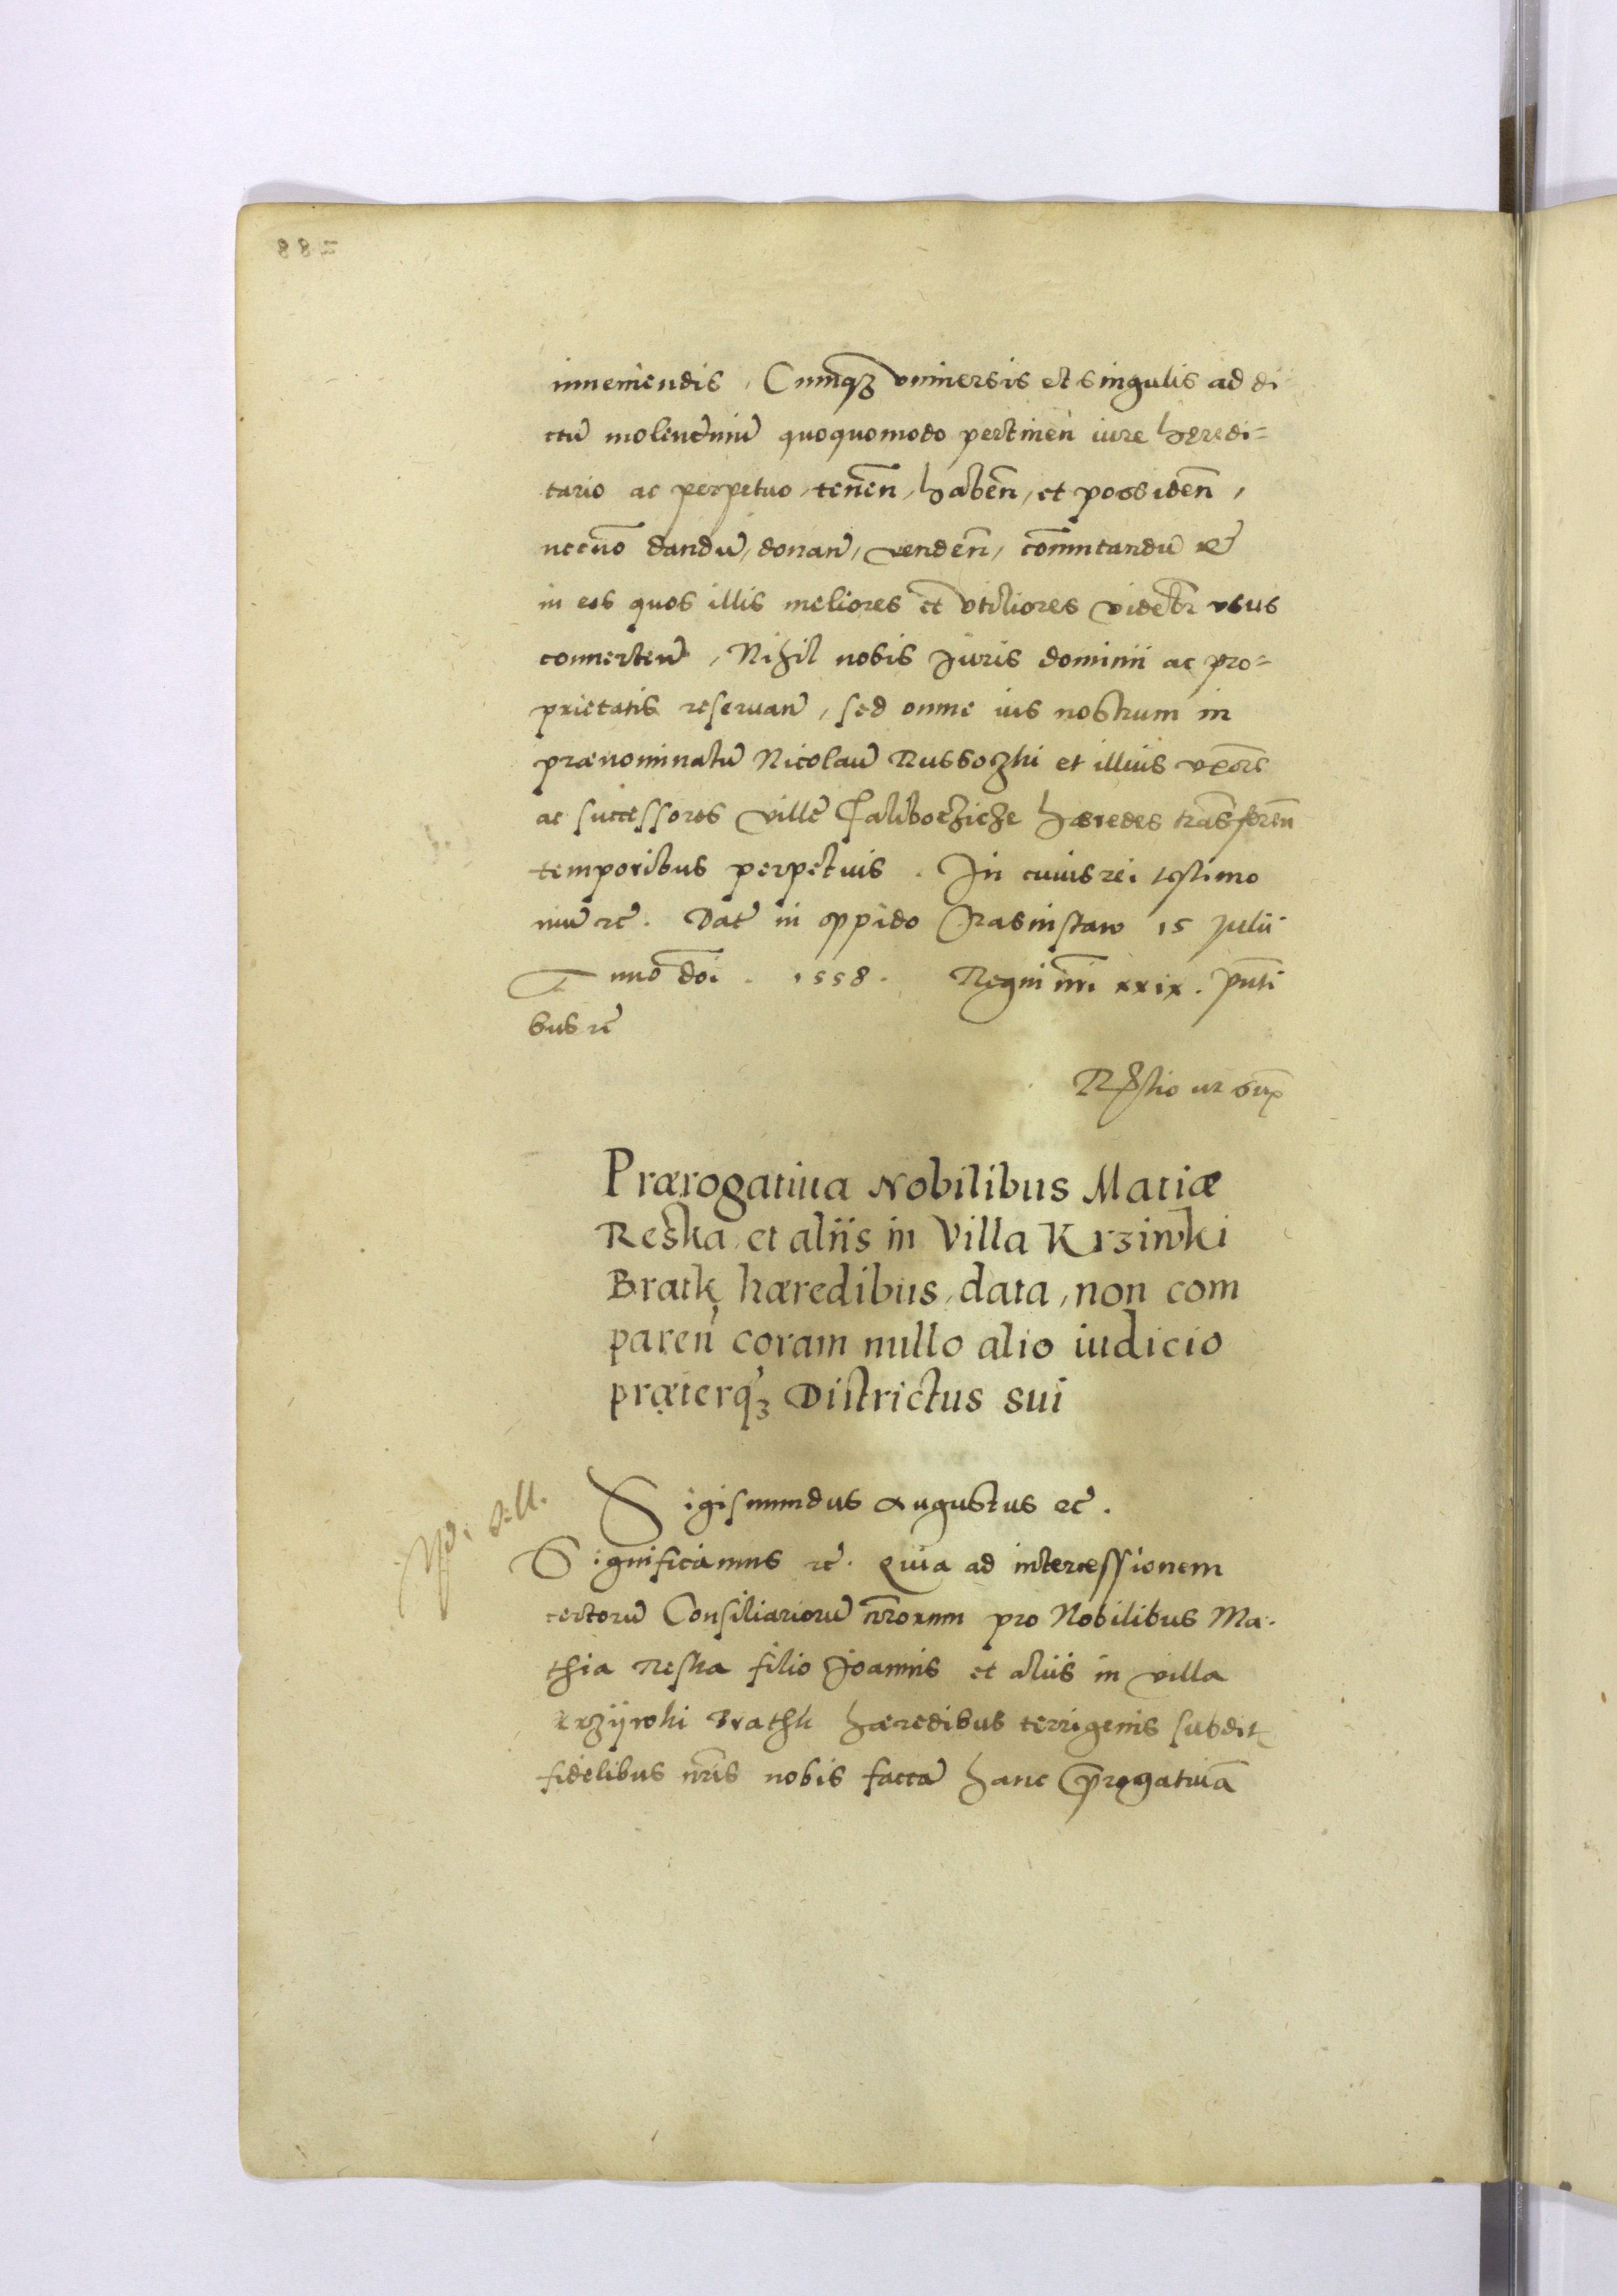 inueniendis, Cumqꝫ vniuersis et singulis ad di
ctũ molendinũ quoquomodo pertineñ iure heredi=
tario ac perpetuo, teneñ, habeñ, et possideñ,
necnõ dandũ, donañ, vendeñ, cõmutandũ et
in eos quos illis meliores et vtiliores videbr̃ vsus
conuerteñ, Nihil nobis Juris dominii ac pro=
prietatis reseruañ, sed omne ius nostrum in
prænominatũ Nicolaũ Russozhi et illius vxorẽ
ac successores villę Caliboczicze hæredes trãsfereñ
temporibus perpetuis. In cuius rei testimo
niũ ꝛc̃. Dat̃ in oppido Crasnistaw 15 Julii
Anno dñi. 1558. Regni nr̃i xxix. Pñti
bus ꝛc̃
Rl̃tio ut sup̃
Prærogatiua Nobilibus Matiæ
Reska et aliis in Villa Krziwki
Bratk hæredibus, data, non com
pareñ coram nullo alio iudicio
præterqꝫ Districtus sui
Sigismundus Augustus ꝛc̃.
Significamus ꝛc̃. Quia ad intercessionem
certorũ Consiliariorũ nr̃orum pro Nobilibus Ma-
thia Reska filio Joannis et aliis in villa
Krzijwki Brathk hæredibus terrigenis subdit
fidelibus nr̃is nobis factã hanc prærogatiuã